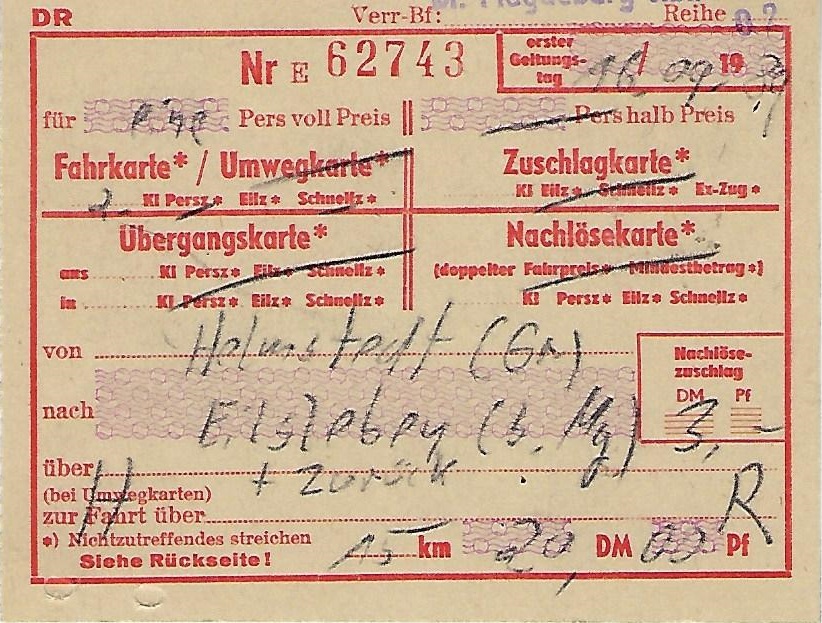 DR Verr-Bf: Reihe 02
Nr E 62743
erster
Geltungs-
tag 18/09 19
für eine Pers voll Preis
Pers halb Preis
Fahrkarte* / Umwegkarte*
2. Kl Persz* Eilz* Schnellz*
Zuschlagkarte*
Kl Eilz* Schnellz* Ex-Zug*
Übergangskarte*
aus Kl Persz* Eilz* Schnellz*
in Kl Persz* Eilz* Schnellz*
Nachlösekarte*
(doppelter Fahrpreis* Mindestbetrag*)
Kl Persz* Eilz* Schnellz*
von Helmstedt (Gr)
nach Eilsleben (b. Mg)
Nachlöse-
zuschlag
DM Pf
3,-
über + zurück
(bei Umwegkarten)
zur Fahrt über
H R
*) Nichtzutreffendes streichen
Siehe Rückseite!
15 km DM Pf